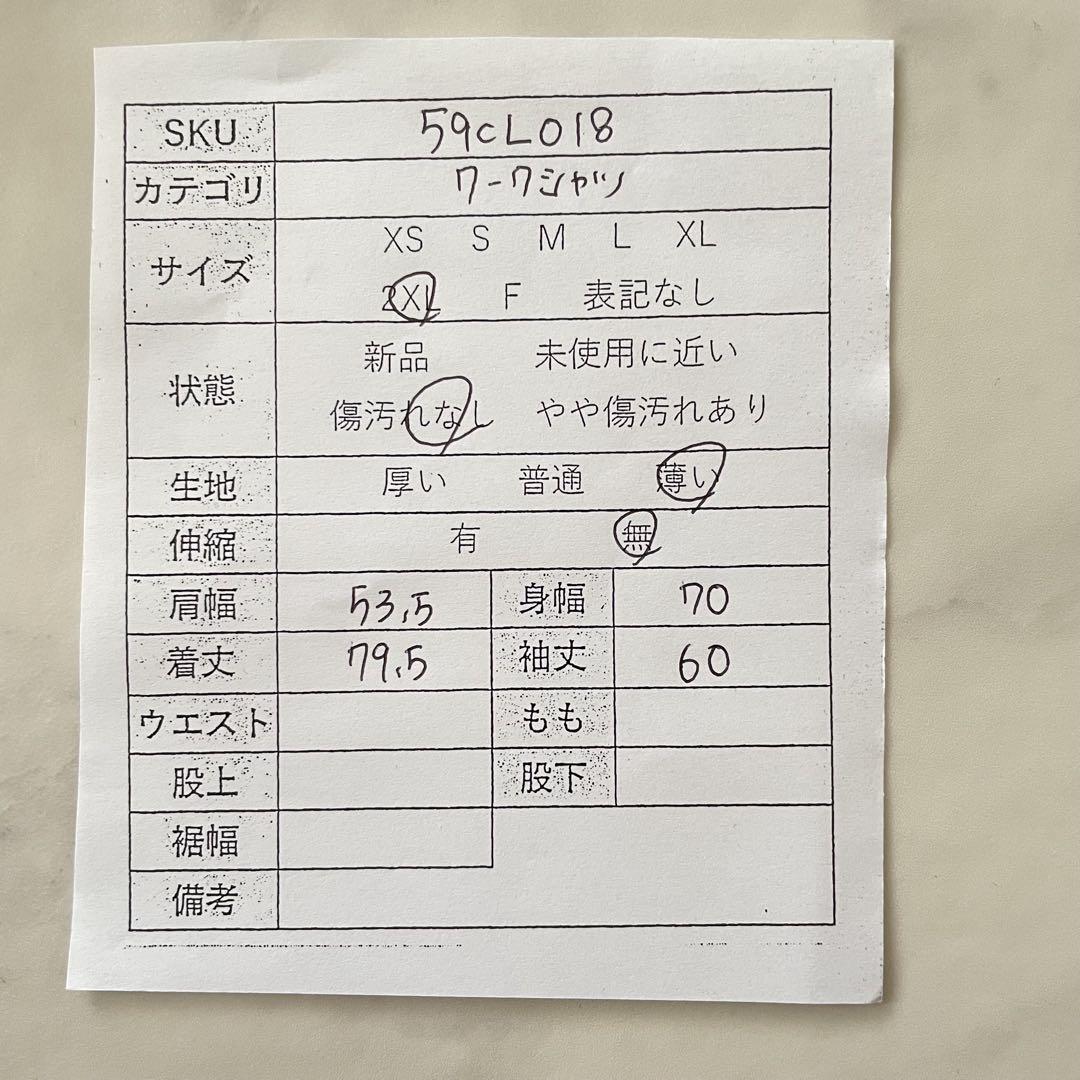 SKU 59CL018
カテゴリ ワークシャツ
サイズ XS S M L XL
2XL F 表記なし
状態 新品 未使用に近い
傷汚れなし やや傷汚れあり
生地 厚い 普通 薄い
伸縮 有 無
肩幅 53,5 身幅 70
着丈 79,5 袖丈 60
ウエスト もも
股上 股下
裾幅
備考